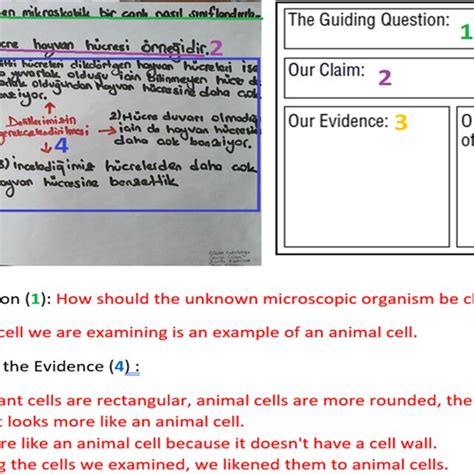 en mikroskobik bir canlı nasıl sınıflandırılı
cre hayvan hücresi örneğidir. 2
itki hücreleri dikdörtgen hayvan hücreleri ise
yuvarlak olduğu için Bilinmeyen hücre de
arlak olduğundan Hayvan hücresine daha çok
nziyor.
Delillerimizin
gerekçelendirilmesi
4
2) Hücre duvarı olmadığ
için de hayvan hücresi
daha çok benziyor.
3) incelediğimiz hücrelerden daha çok
ayvan hücresine benzettik
The Guiding Question:
1
Our Claim: 2
Our Evidence: 3
O
of
on (1): How should the unknown microscopic organism be cl
cell we are examining is an example of an animal cell.
the Evidence (4) :
ant cells are rectangular, animal cells are more rounded, the
t looks more like an animal cell.
re like an animal cell because it doesn't have a cell wall.
g the cells we examined, we likened them to animal cells.